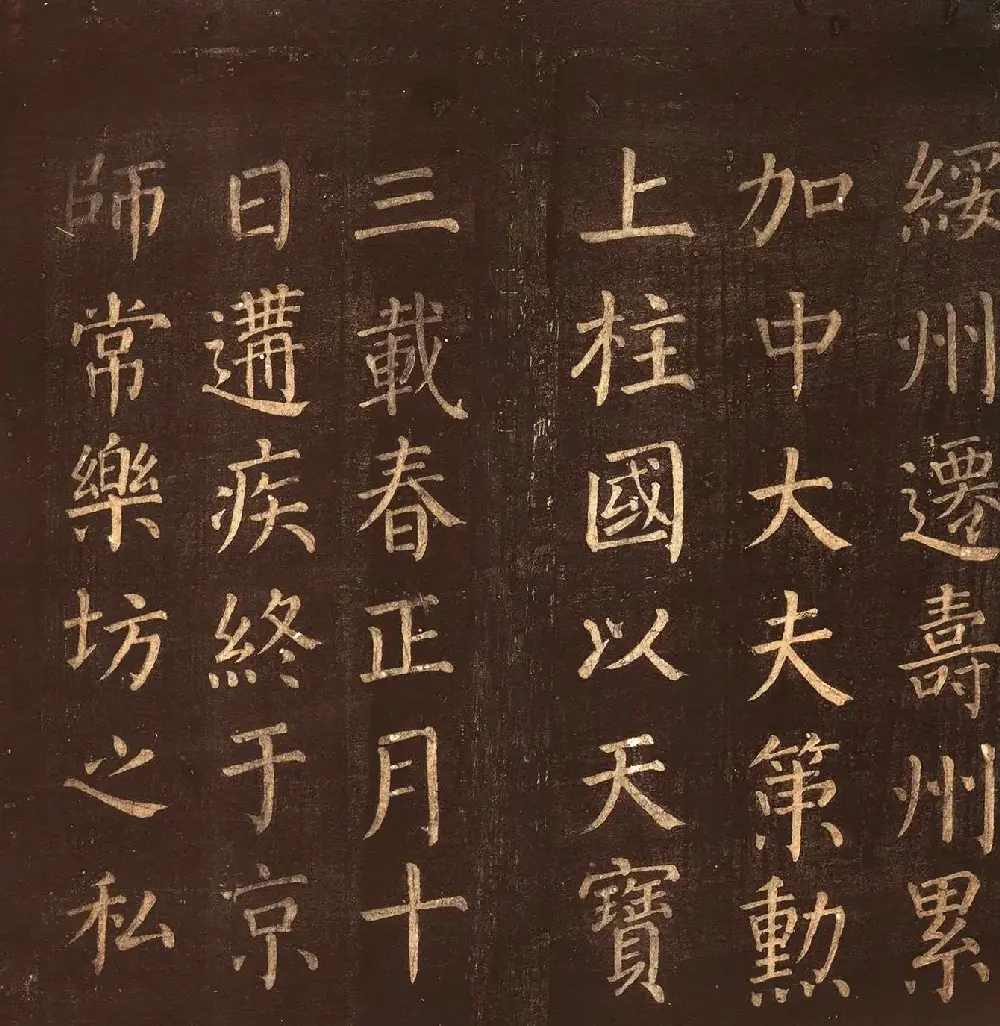 綏州遷壽州累
加中大夫第勳
上柱國以天寶
三載春正月十
日遘疾終于京
師常樂坊之私